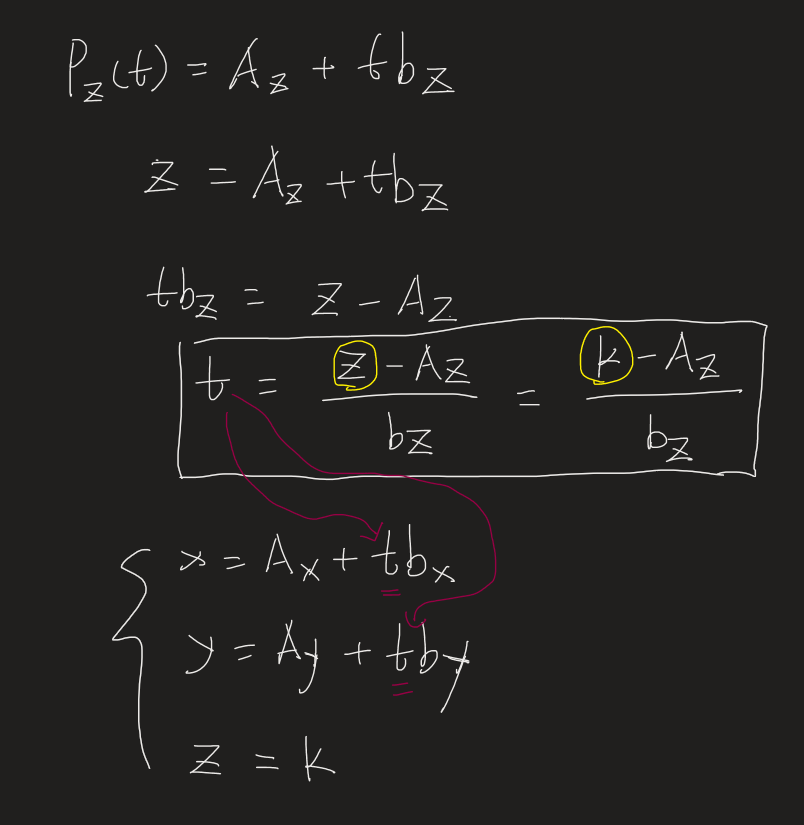 P_z(t) = A_z + tb_z
z = A_z + tb_z
tb_z = z - A_z
t = (z - A_z)/b_z = (k - A_z)/b_z
x = A_x + tb_x
y = A_y + tb_y
z = k